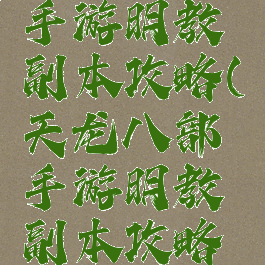 手游明教
副本攻略(
天龙八部
手游明教
副本攻略